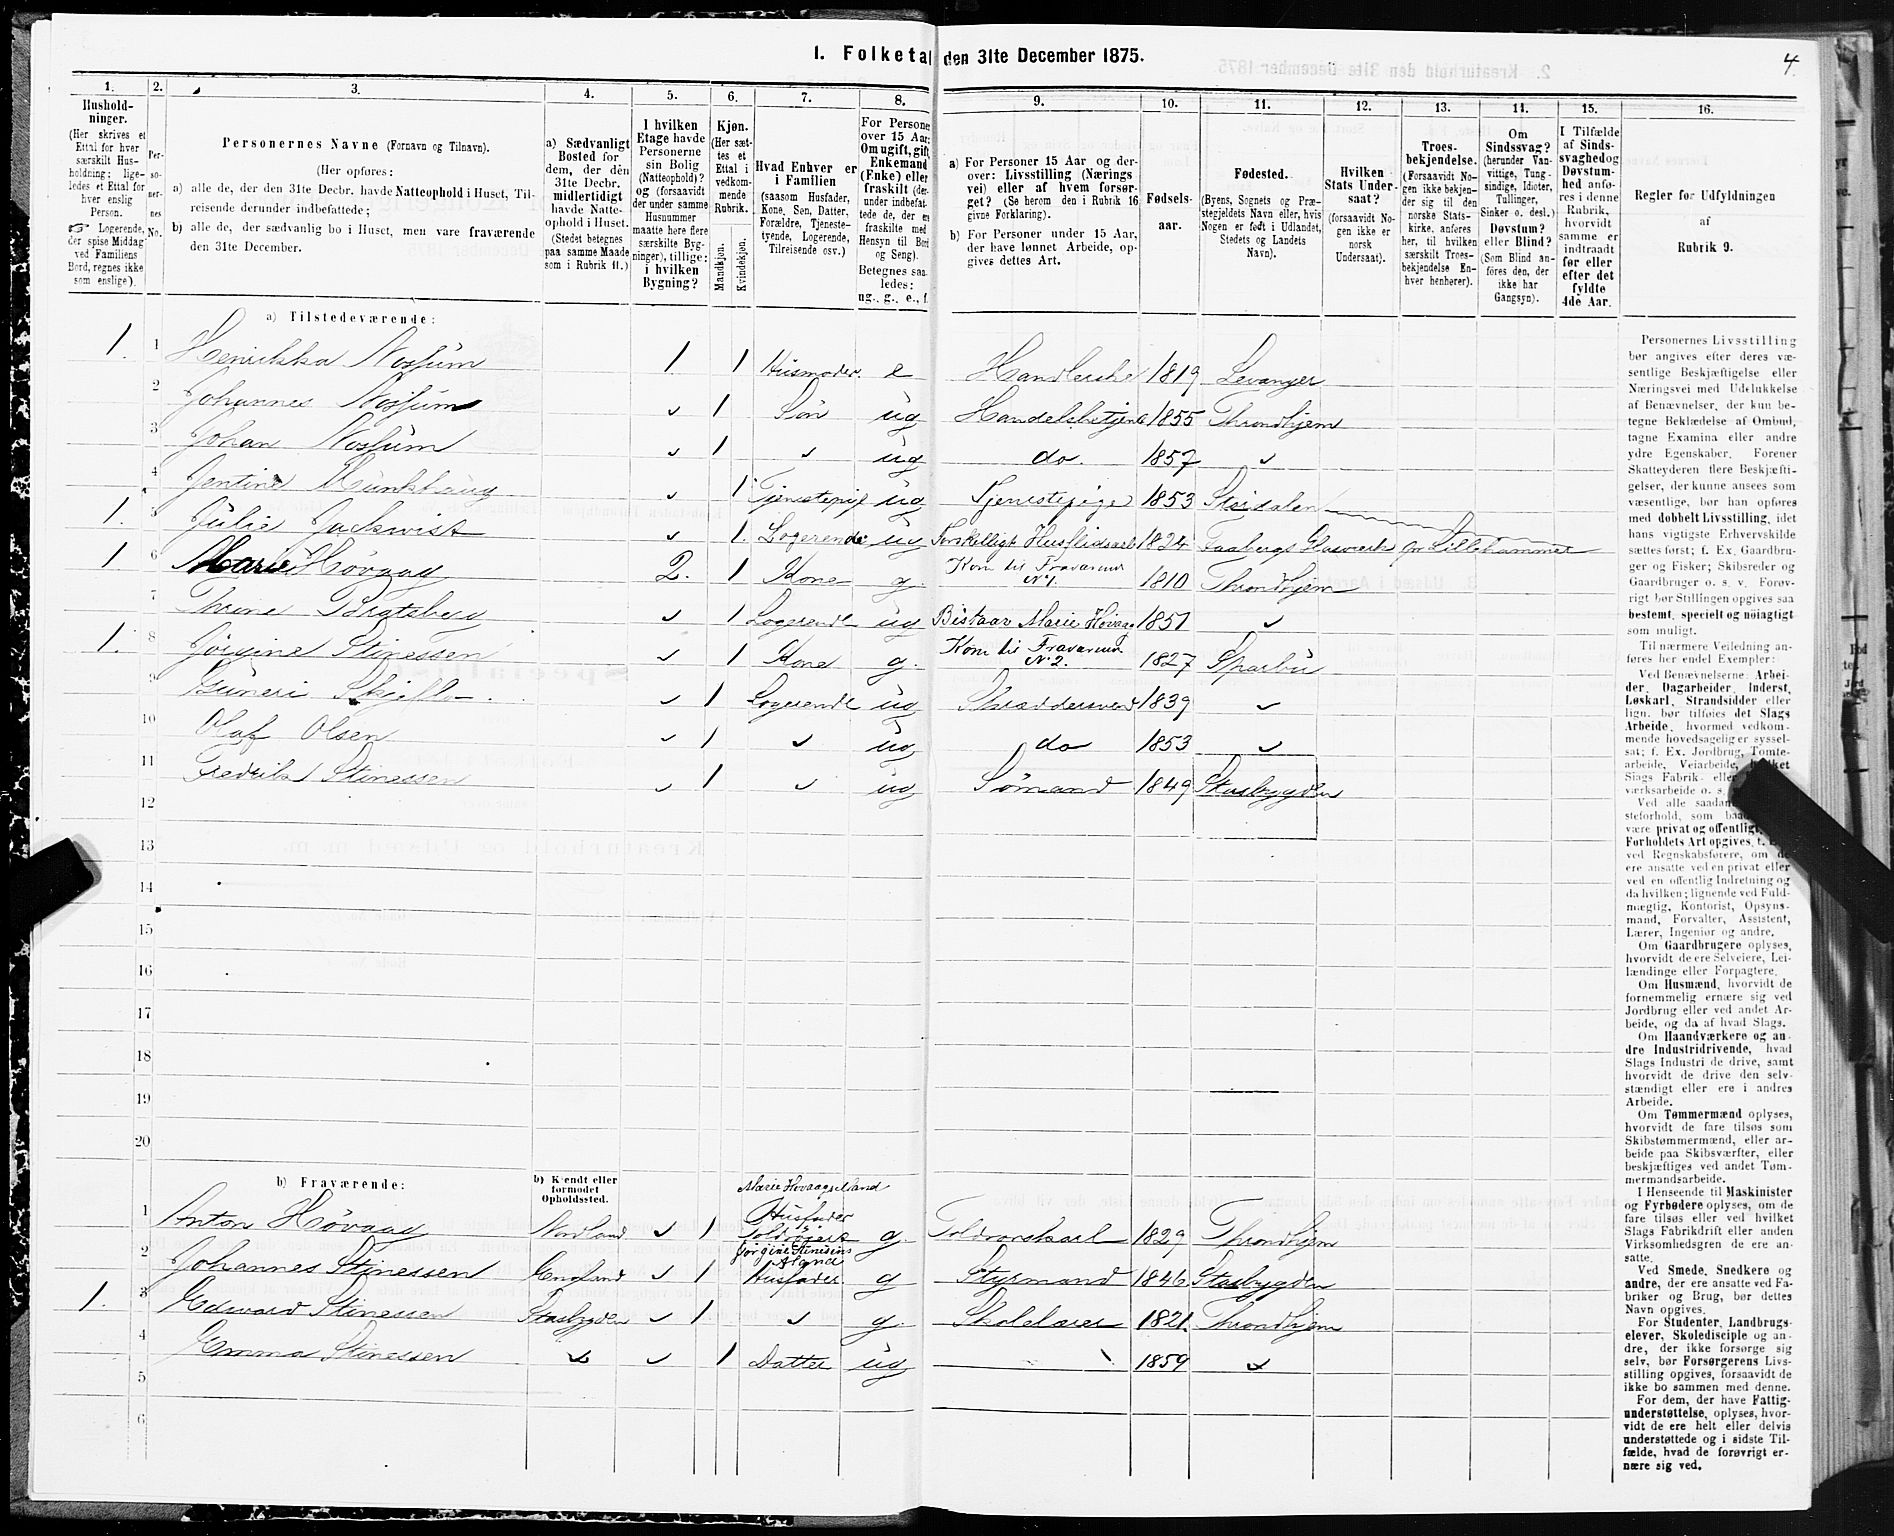 1. Folketal den 31te December 1875.
4.
1. 2. 3. 4. 5. 6. 7. 8. 9. 10. 11. 12. 13. 14. 15. 16.
Hushold-
ninger.
(Her skrives et
Ettal for hver
særskilt Hus-
holdning; lige-
ledes et Ettal for
hver enslig
Person.
☞ Logerende,
der spise Middag
ved Familiens
Bord, regnes ikke
som enslige).
Per-
so-
ner-
nes
No.
Personernes Navne (Fornavn og Tilnavn).
(Her opføres:
a) alle de, der den 31te Decbr. havde Natteophold i Huset, Til-
reisende derunder indbefattede;
b) alle de, der sædvanlig bo i Huset, men vare fraværende
den 31te December.
a) Sædvanligt
Bosted for
dem, der den
31te Decbr.
midlertidigt
havde Natte-
ophold i Huset.
(Stedet betegnes
paa samme Maade
som i Rubrik 11.)
I hvilken
Etage havde
Personerne
sin Bolig
(Natteophold)?
og (forsaavidt
der under samme
Husnummer
maatte høre flere
særskilte Byg-
ninger), tillige:
i hvilken
Bygning?
Kjøn.
(Her sæt-
tes et
Ettal i
vedkom-
mende
Rubrik.
Mandkjøn.
Kvindekjøn.
Hvad Enhver er
i Familien
(saasom Husfader,
Kone, Søn, Datter,
Forældre, Tjeneste-
tyende, Logerende,
Tilreisende osv.)
For Persone
over 15 Aar:
Om ugift, gift
Enkemand
(Enke) elle
fraskilt (der-
under indbefat-
tede de, der e
fraskilte med
Hensyn til Bor
og Seng).
Betegnes saa-
ledes:
ug., g., e., f.
a) For Personer 15 Aar og der-
over: Livsstilling (Nærings
vei) eller af hvem forsør-
get? (Se herom den i Rubrik 16
givne Forklaring).
b) For Personer under 15 Aar,
der have lønnet Arbeide, op-
gives dettes Art.
Fødsels-
aar.
Fødested.
(Byens, Sognets og Præ-
stegjeldets Navn eller, hvis
Nogen er født i Udlandet,
Stedets og Landets
Navn).
Hvilken
Stats Under-
saat?
(forsaavidt No-
gen ikke er
norsk
Undersaat).
Troes-
bekjendelse.
(Forsaavidt No-
gen ikke bekjen-
der sig til den
norske Stats-
kirke, anføres
her, til hvilken
særskilt Troes-
bekjendelse En-
hver henhører).
Om
Sindssvag?
(herunder Van-
vittige, Tung-
sindige, Idioter,
Tullinger,
Sinker o. desl.)
Døvstum?
eller Blind?
(Som Blind an-
føres den, der
ikke har
Gangsyn).
I Tilfælde
af Sinds-
svaghed og
Døvstum-
hed anfø-
res i denne
Rubrik,
hvorvidt
samme er
indtraadt
før eller
efter det
fyldte
4de Aar.
Regler for Udfyldningen
af
Rubrik 9.
a) Tilstedeværende:
1. 1 Henrikka Nossum 1. 1 Husmoder. e Handlerske 1819 Levanger
2 Johannes Nossum 1 Søn ug Handelsbetjent 1855 Throndhjem
3 Johan Nossum 1 ug do. 1857
4 Jentine Munkhaug 1 Tjenestepige ug Tjenestepige 1853 Stjørdalen
1. 5 Julie Jackwist 1. Logerende ug Forskelligt Husflidsarb 1824 Faabergs Glasværk pr Lillehammer
1 6 Marie Høvaag 2. 1 Kone g. Kone til Fraværend N.1. 1810 Throndhjem
7 Thrine Bratsberg 1 Logerende ug Bistaar Marie Høvaag 1851
1. 8 Jørgine Stinessen 1 Kone g. Kone til Fraværend N.2. 1827 Sparbu
Guneri Skjeflo 1 Logerende ug Skræddersvend 1839
10 Olaf Olsen 1 ug do 1853
11 Fredrik Stinessen 1 ug Sømand 1849 Stadsbygden
12
13
14
15
16
17
18
19
20
b) Fraværende:
b) Kjendt eller
formodet
Opholdssted.
Marie Hovaags Mand
1 Anton Høvaag Nordland 1 Husfader g. Toldroerskarl 1829 Throndhjem
Jørgine Stinesens Mand
2 Johannes Stinessen England 1 Husfader. g Styrmand 1846 Stadsbygden
1. 3 Edward Stinessen Stadsbygden 1 g. Skolelærer 1821. Throndhjem
4 Emma Stinessen 1 Datter ug 1859
5
6
Personernes Livsstilling
bør angives efter deres væ-
sentlige Beskjæftigelse eller
Næringsvei med Udelukkelse
af Benævnelser, der kun be-
tegne Beklædelse af Ombud,
tagne Examina eller andre
ydre Egenskaber. Forener
Skatteyderen flere Beskjæfti-
gelser, der kunne ansees som
væsentlige, bør han opføres
med dobbelt Livsstilling, idet
hans vigtigste Erhvervskilde
sættes først; f. Ex. Gaardbru-
ger og Fisker; Skibsreder og
Gaardbruger o. s. v. Forøv-
rigt bør Stillingen opgives saa
bestemt, specielt og nøiagtigt
som muligt.
Til nærmere Veiledning an-
føres her endel Exempler:
Ved Benævnelserne: Arbei-
der, Dagarbeider, Inderst,
Løskarl, Strandsidder eller
lign. bør tilføies det Slags
Arbeide, hvormed vedkom-
mende hovedsagelig er syssel-
sat; f. Ex. Jordbrug, Tomte-
arbeide, Veiarbeide,
Slags Fabrik- eller
værksarbeide o. s.
Ved alle saadan
steforhold, som
være privat og offentligt,
Forholdets Art opgives,
ved Regnskabsførere, om de
ere ansatte ved en privat eller
ved en offentlig Indretning og
da hvilken; lignende ved Fuld-
mægtig, Kontorist, Opsyns-
mand, Forvalter, Assistent,
Lærer, Ingeniør og andre.
Om Gaardbrugere oplyses,
hvorvidt de ere Selveiere, Lei-
lændinge eller Forpagtere.
Om Husmænd, hvorvidt de
fornemmelig ernære sig ved
Jordbrug eller ved andet Ar-
beide, og da af hvad Slags.
Om Haandværkere og an-
dre Industridrivende, hvad
Slags Industri de drive, samt
hvorvidt de drive den selv-
stændigt eller ere i andres
Arbeide.
Om Tømmermænd oplyses,
hvorvidt de fare tilsøs som
Skibstømmermænd, eller ar-
beide paa Skibsværfter, eller
beskjæftiges ved andet Tøm-
mermandsarbeide.
I Henseende til Maskinister
og Fyrbødere oplyses, om de
fare tilsøs eller ved hvilket
Slags Fabrikdrift eller anden
Virksomhedsgren de ere an-
satte.
Ved Smede, Snedkere og
andre, der ere ansatte ved Fa-
briker og Brug, bør dettes
Navn opgives.
For Studenter, Landbrugs-
elever, Skoledisciple og an-
dre, der ikke forsørge sig
selv, bør Forsørgerens Livs-
stilling opgives, forsaavidt de
ikke bo sammen med denne.
For dem, der have Fattig-
understøttelse, oplyses, hvor-
vidt de ere helt eller delvis
understøttede og i sidste Til-
fælde, hvad de forøvrigt er-
nære sig ved.